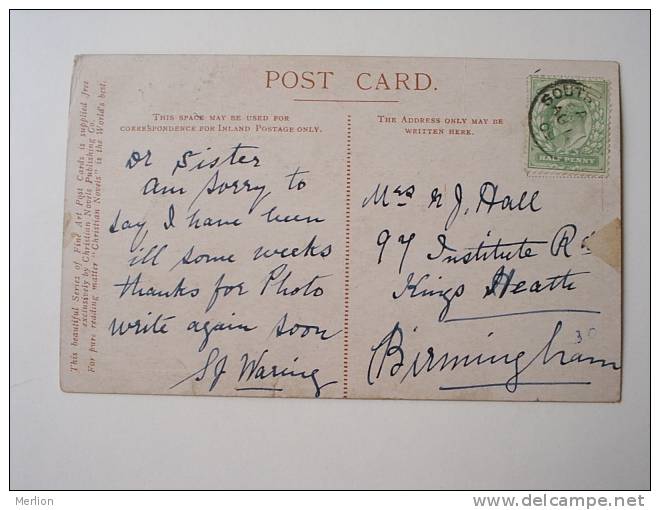 POST CARD.
THIS SPACE MAY BE USED FOR
CORRESPONDENCE FOR INLAND POSTAGE ONLY.
THE ADDRESS ONLY MAY BE
WRITTEN HERE.
This beautiful Series of Fine Art Post Cards is supplied free
exclusively by Christian Novels Publishing Co.
For pure reading matter "Christian Novels" is the World's best.
Dr Sister
am sorry to
say I have been
ill some weeks
thanks for Photo
write again soon
SJ Waring
Mrs N J. Hall
97 Institute Rd
Kings Heath
Birmingham
HALF PENNY
SOUTH
AU
30
Merlion
www.delcampe.net